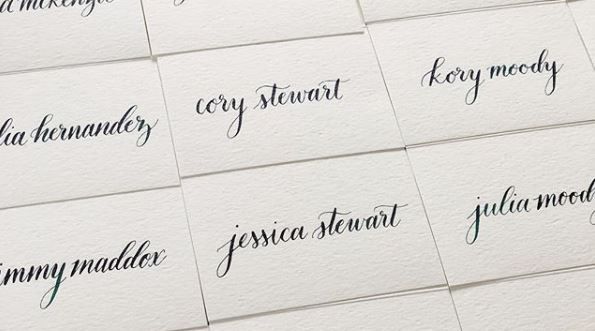 mckenzie
cory stewart
kory moody
lia hernandez
jessica stewart
julia moody
immy maddox